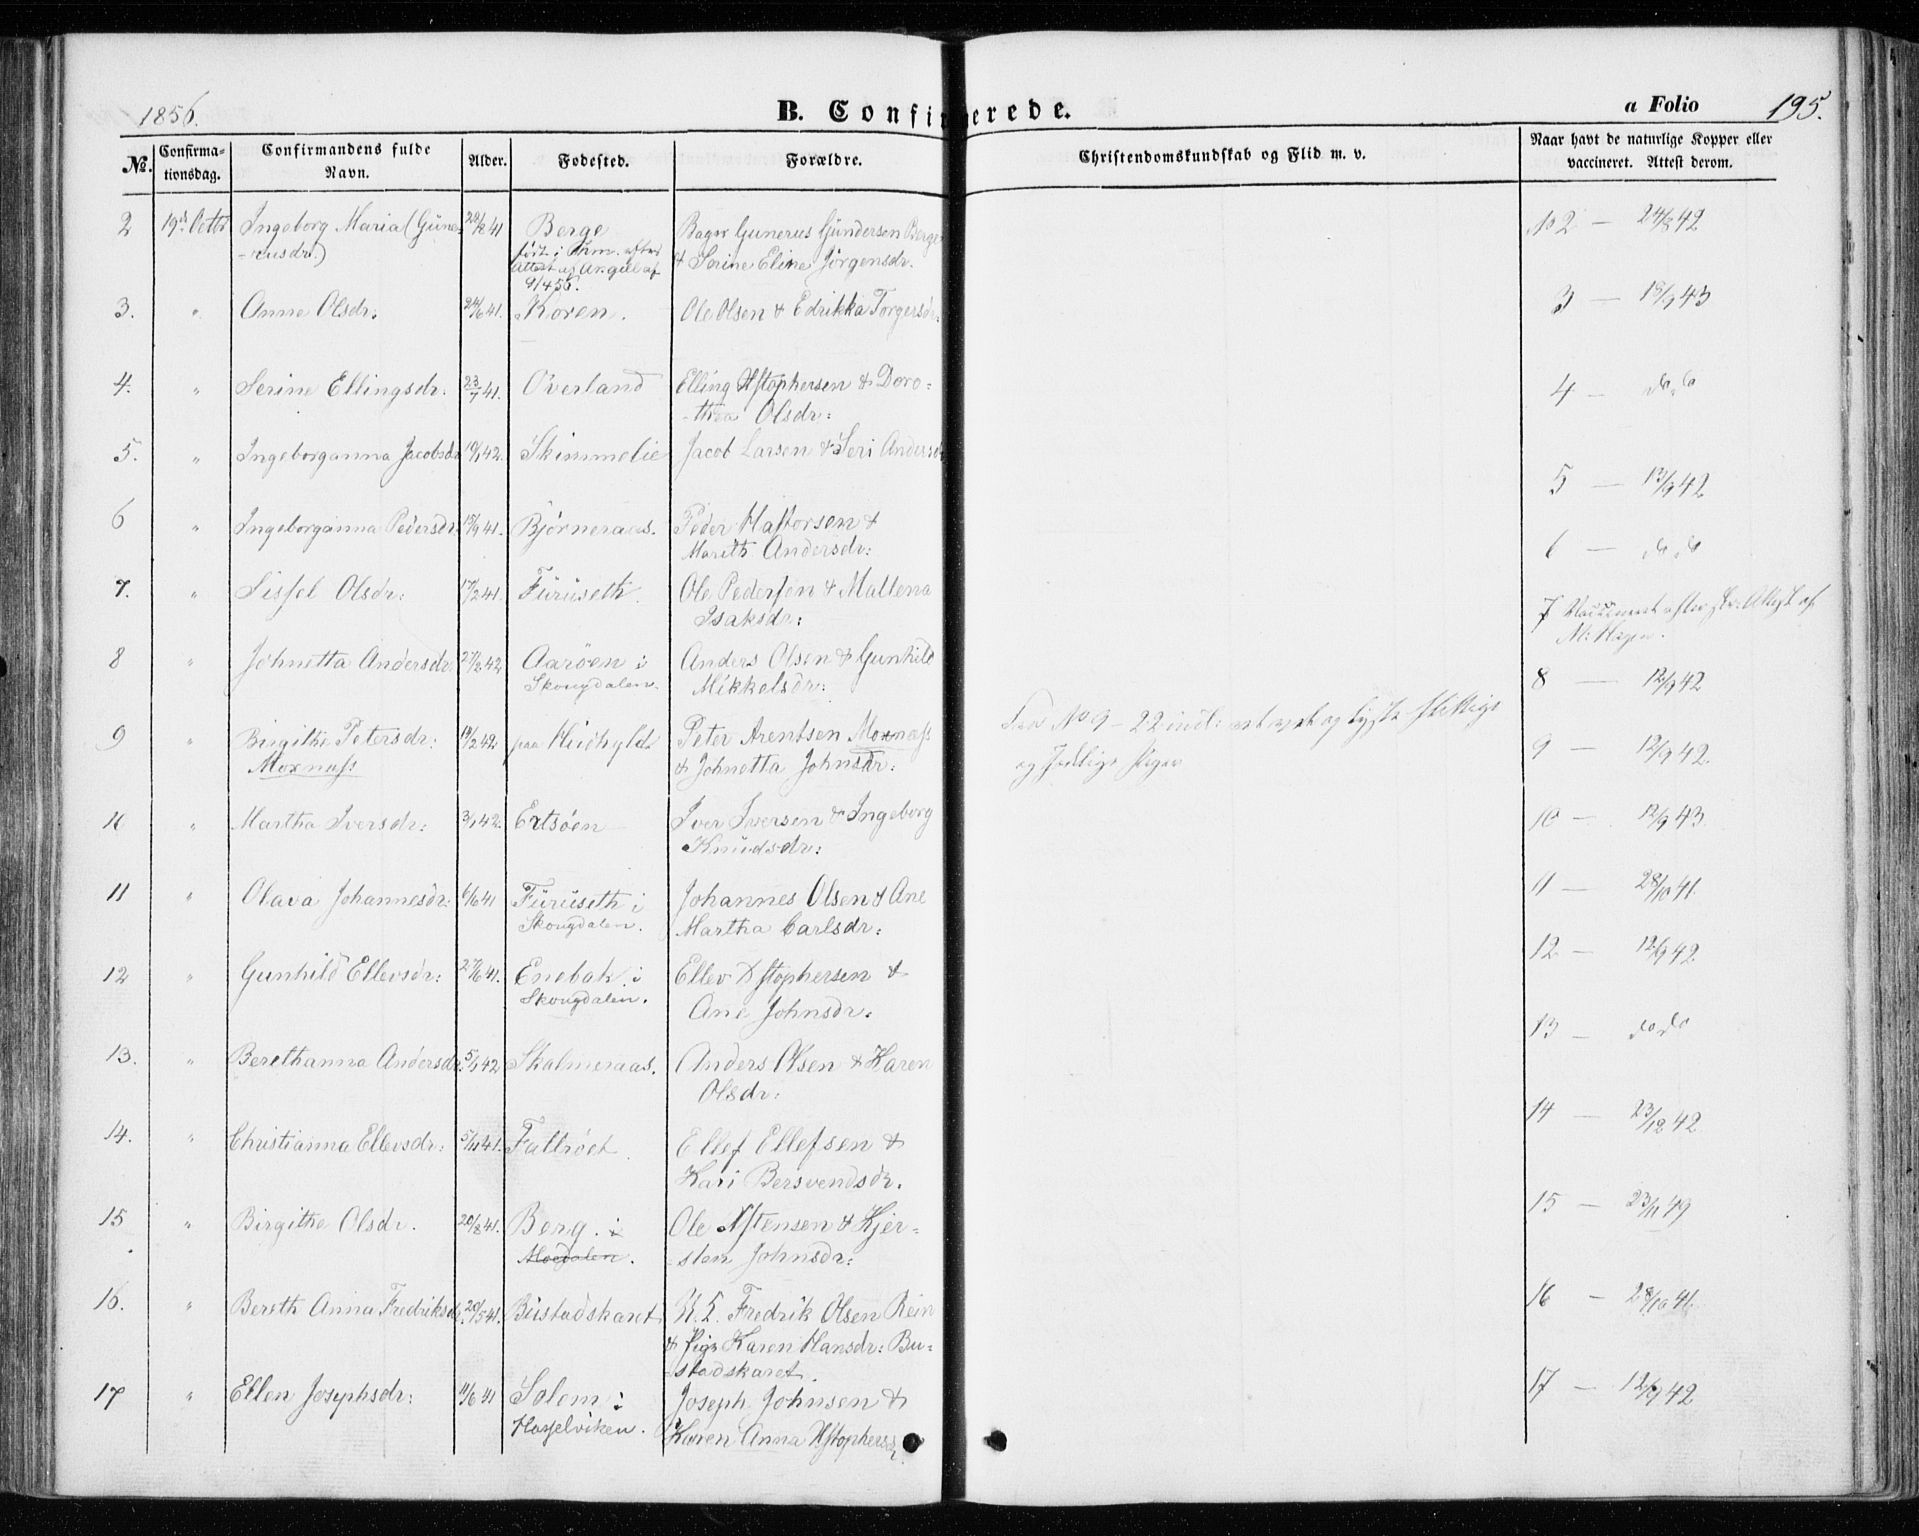 1856.
B. Confirmerede.
a Folio 195.
No. Confirma-tionsdag. Confirmandens fulde Navn. Alder. Fødested. Forældre. Christendomskundskab og Flid m. v. Naar havt de naturlige Kopper eller vaccineret. Attest derom.
2 19de Octbr Ingeborg Maria (Gune- 41 Berge Bager Gunerus Gundersen Berge No 2 — 24/8 42
-rusdr.) født i Thm. & Serine Eline Jörgensdr.
3. " Anne Olsdr. 24/6 41. Koren. Ole Olsen & Edrikka Torgersdr: 3 — 43
4. " Serine Ellingsdr: 23/7 41. Overland Elling Xstophersen & Doro= 4 — do do
-thea Olsdr:
5. " Ingeborganna Jacobsdr 10/1 42. Skimmelie Jacob Larsen & Seri Andersdr 5 — 13/9 42
6 " Ingeborganna Pedersdr 15/9 41. Björneraas. Peder Hastorsen & 6 — do do
Marith Andersdr:
7. " Sissel Olsdr: 17/2 41. Furuseth. Ole Pedersen & Maltena 7 af
Isaksdr: M: Hagen.
8 " Johnetta Andersdr 27/2 42 Aaröen i Anders Olsen & Gunhild 8 — 12/9 42
Skougdalen. Mikkelsdr:
9 " Birgithe Petersdr: 19/2 42 paa Peter Arentsen Moxness 9 — 12/9 42.
Moxness & Johnetta Johnsdr: No 9 – 22 incl: og
og
10 " Martha Iversdr: 3/1 42. Ertsöen Iver Iversen & Ingeborg 10 — 12/9 43
Knudsdr:
11 " Olava Johannesdr: 6/6 41 Furuseth i Johannes Olsen & Ane 11 — 28/10 41.
Skougdalen. Martha Carlsdr:
12 " Gunhild Ellevsdr: 27/6 41. Enebak i Ellev Xstophersen & 12 — 12/9 42
Skougdalen. Ane Johnsdr:
13. " Berethanna Andersdr 5/1 42 Skalmeraas. Anders Olsen & Karen 13 — do do
Olsdr:
14. " Christianna Ellevsdr: 5/11 41. Fallröet Ellef Ellefsen & 14 — 23/12 42
Kari Bersvendsdr.
15 " Birgithe Olsdr. 20/8 41. Berg i Ole Xstensen & Kjer- 15 — 23/11 49
Moedalen. -sten Johnsdr:
16. " Bereth Anna Fredriksdr. 20/5 41. Bustadskaret U. S. Fredrik Olsen Rein 16 — 28/10 41.
& Pige Karen Hansdr: Bu-
stadskaret.
17 " Ellen Josephsdr: 11/6 41 Solem i Joseph Johnsen & 17 — 12/9 42
Hasselviken. Karen Anna Xstophersdr.